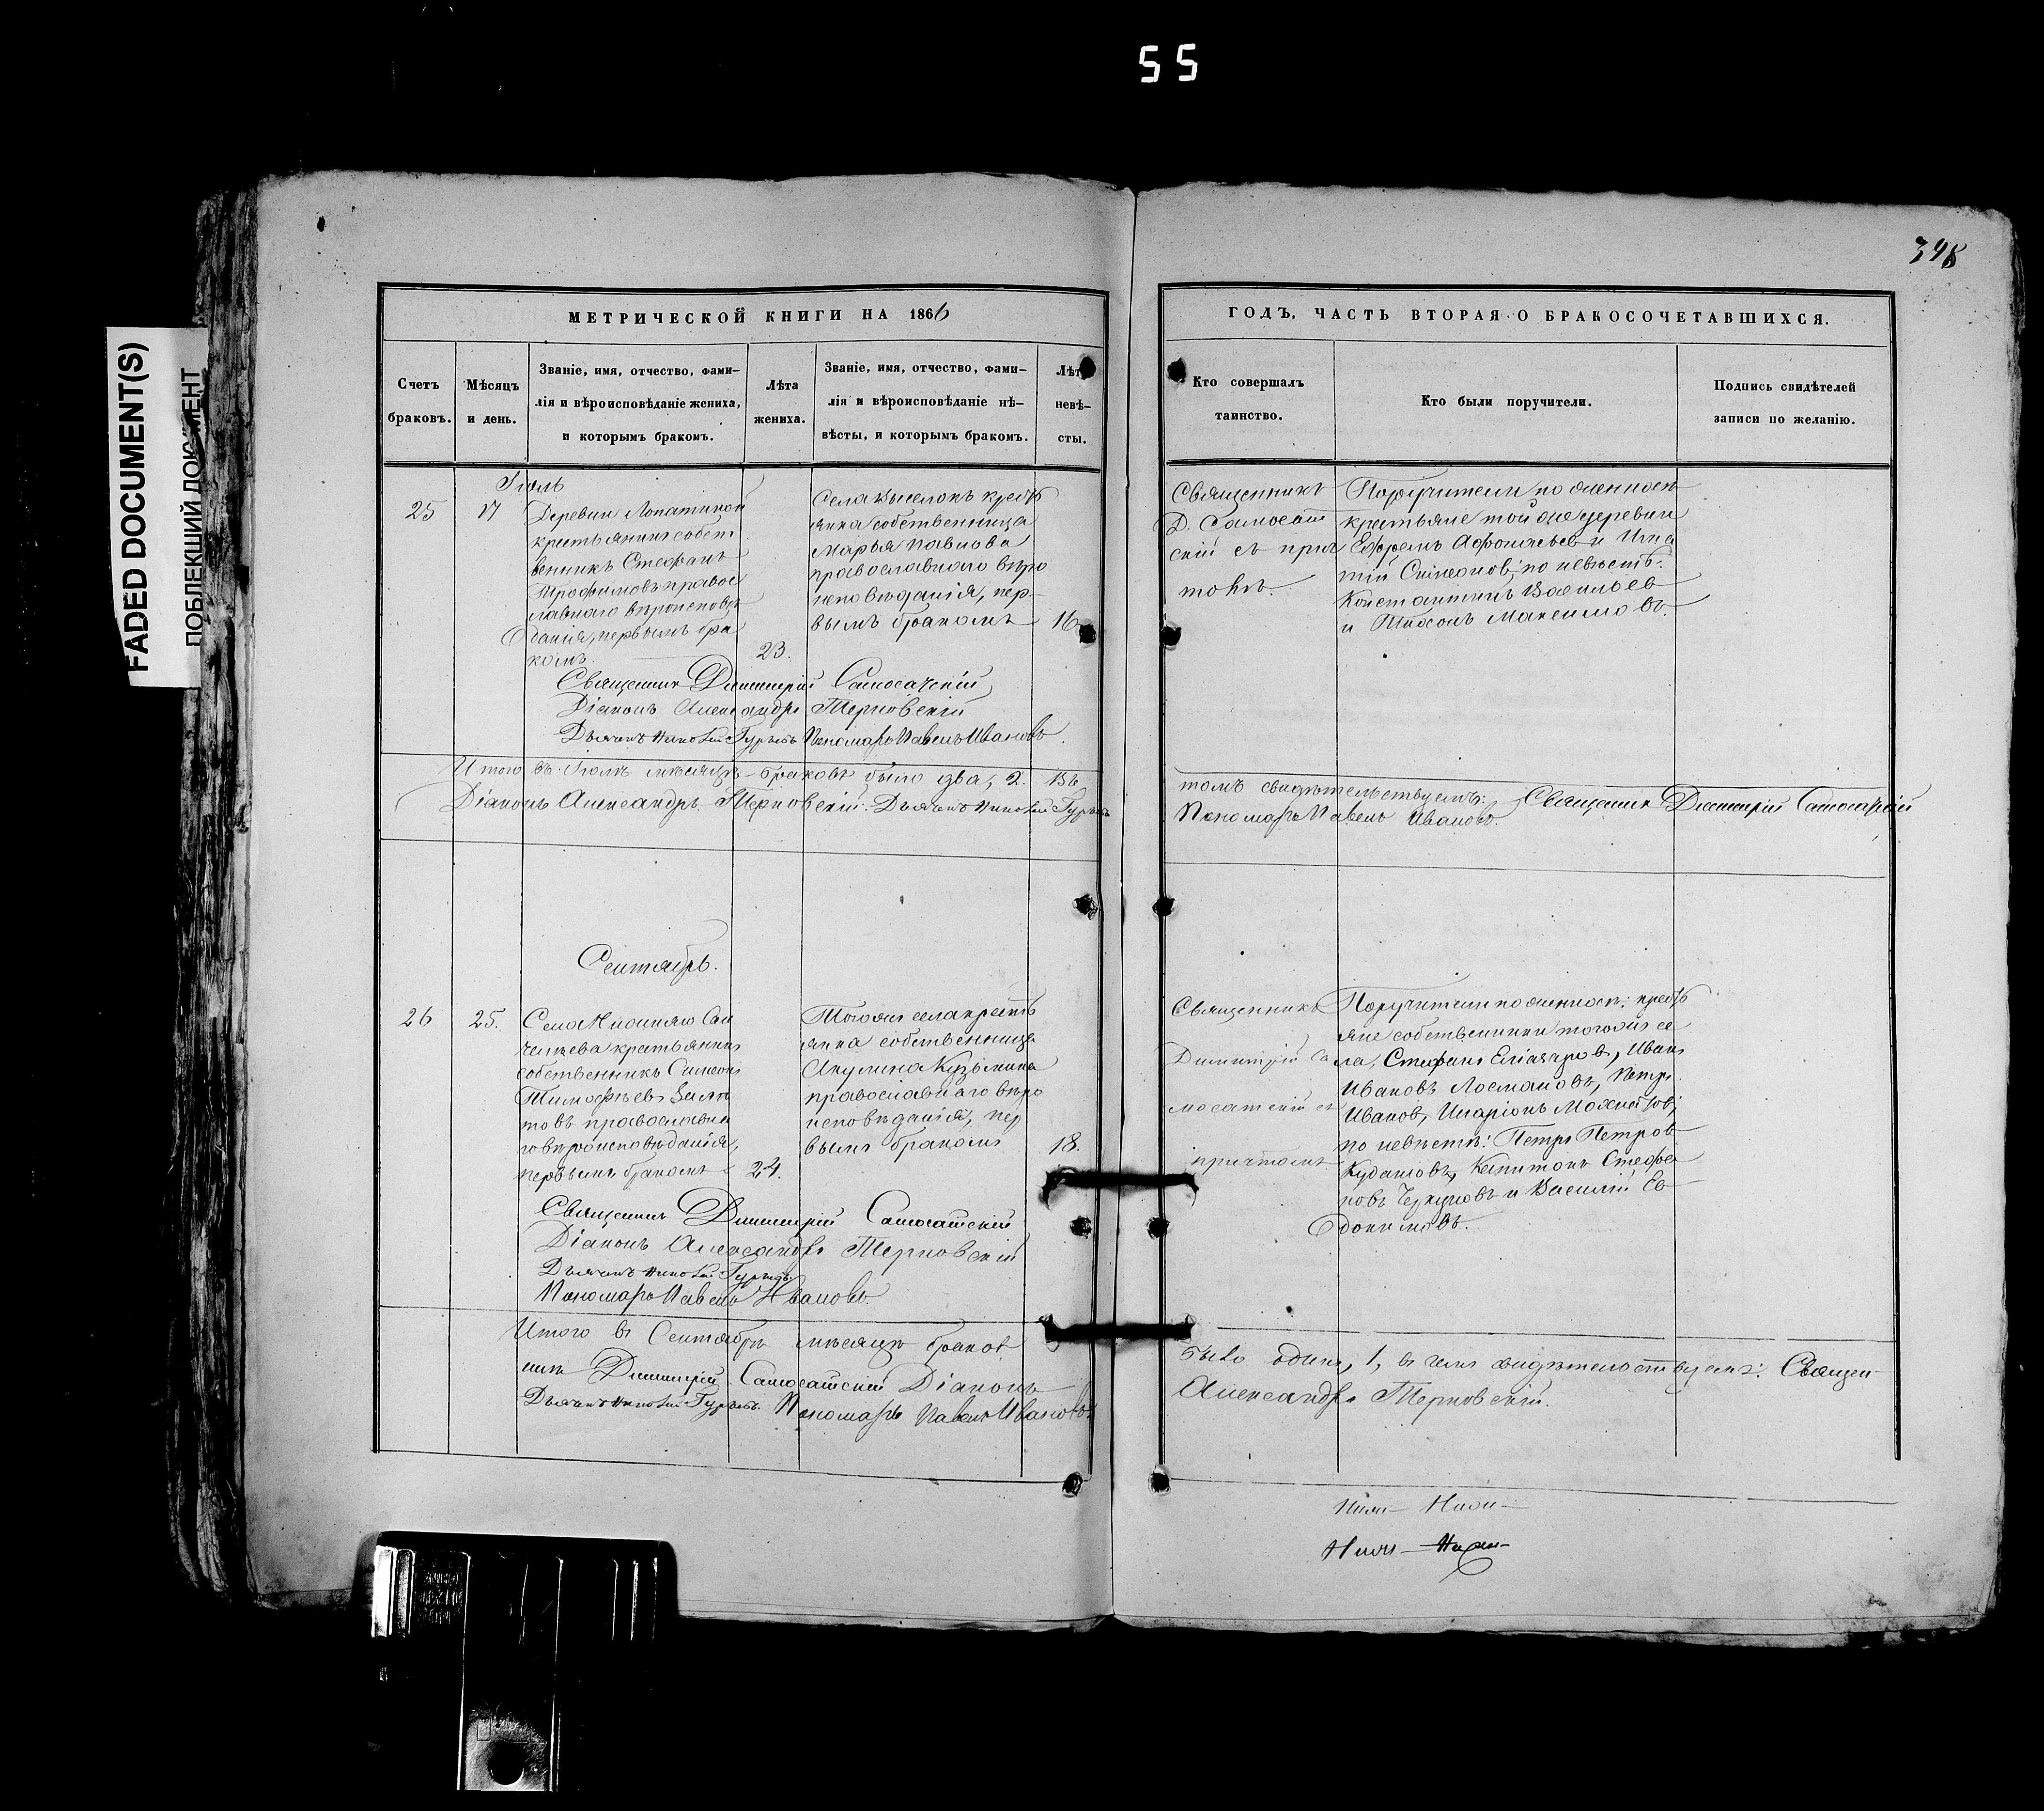 55
348
FADED DOCUMENT(S)
ПОБЛЕКШИЙ ДОКУМЕНТ
МЕТРИЧЕСКОЙ КНИГИ НА 1866
ГОДЪ, ЧАСТЬ ВТОРАЯ О БРАКОСОЧЕТАВШИХСЯ.
Счетъ
браковъ.
Мѣсяцъ
и день.
Званіе, имя, отчество, фами-
лія и вѣроисповѣданіе жениха,
и которымъ бракомъ.
Лѣта
жениха.
Званіе, имя, отчество, фами-
лія и вѣроисповѣданіе нѣ-
вѣсты, и которымъ бракомъ.
Лѣт
невѣ-
сты.
Кто совершалъ
таинство.
Кто были поручители.
Подпись свидѣтелей
записи по желанію.
Іюль
25
17
Деревни Лопатиной
крестьянинъ собст
венникъ Стефанъ
Трофимовъ правос
лавнаго вѣроисповѣ
данія, первымъ бра
комъ.
23.
Села Выселокъ кресть
янка собственница
Марья Павлова
православнаго вѣро
исповѣданія, пер-
вымъ бракомъ
16
Священникъ
Д. Самосат
скій съ прич
томъ.
Поручители по женихѣ
крестьяне той же деревни
Ефремъ Афонасьев и Игна
тій Симеонов; по невѣстѣ:
Константинъ Васильев
и Максимовъ.
Священникъ Димитрій Самосатскій
Діаконъ Александръ Терновскій
Дьячекъ Николай Гурьевъ Пономарь Павелъ Ивановъ.
Итого въ Іюлѣ мѣсяцѣ браковъ было два, 2. Въ
томъ свидѣтельствуемъ: Священник Димитрій Самосатскій
Діаконъ Александръ Терновскій. Дьячекъ Николай Гурьевъ
Пономарь Павелъ Ивановъ.
Сентябрь.
26
25.
Села
крестьянинъ
собственникъ Симеонъ
Тимофѣевъ
товъ православна
го вѣроисповѣданія,
первымъ бракомъ
24.
Тогоже села кресть
янка собственница
Акулина Кузьмина
православнаго вѣро
исповѣданія, пер
вымъ бракомъ
18.
Священникъ
Димитрій Са
мосатскій съ
причтомъ
Поручители по женихѣ: кресть
яне собственники тогоже се
ла, Стефанъ Еліазаров, Иванъ
Ивановъ Лосмановъ, Петръ
Иванов, Иларіонъ
по невѣстѣ: Петръ Петров
Кудашовъ, Капитонъ Стефа
новъ и Василій Ев
докимовъ.
Священникъ Димитрій Самосатскій
Діаконъ Александръ Терновскій
Дьячекъ Николай Гурьевъ
Пономарь Павелъ Ивановъ.
Итого въ Сентябрѣ мѣсяцѣ браков
было одинъ, 1, въ чемъ свидѣтельствуемъ: Священ-
никъ Димитрій Самосатскій Діаконъ
Александръ Терновскій.
Дьячекъ Николай Гурьевъ. Пономарь Павелъ Ивановъ.